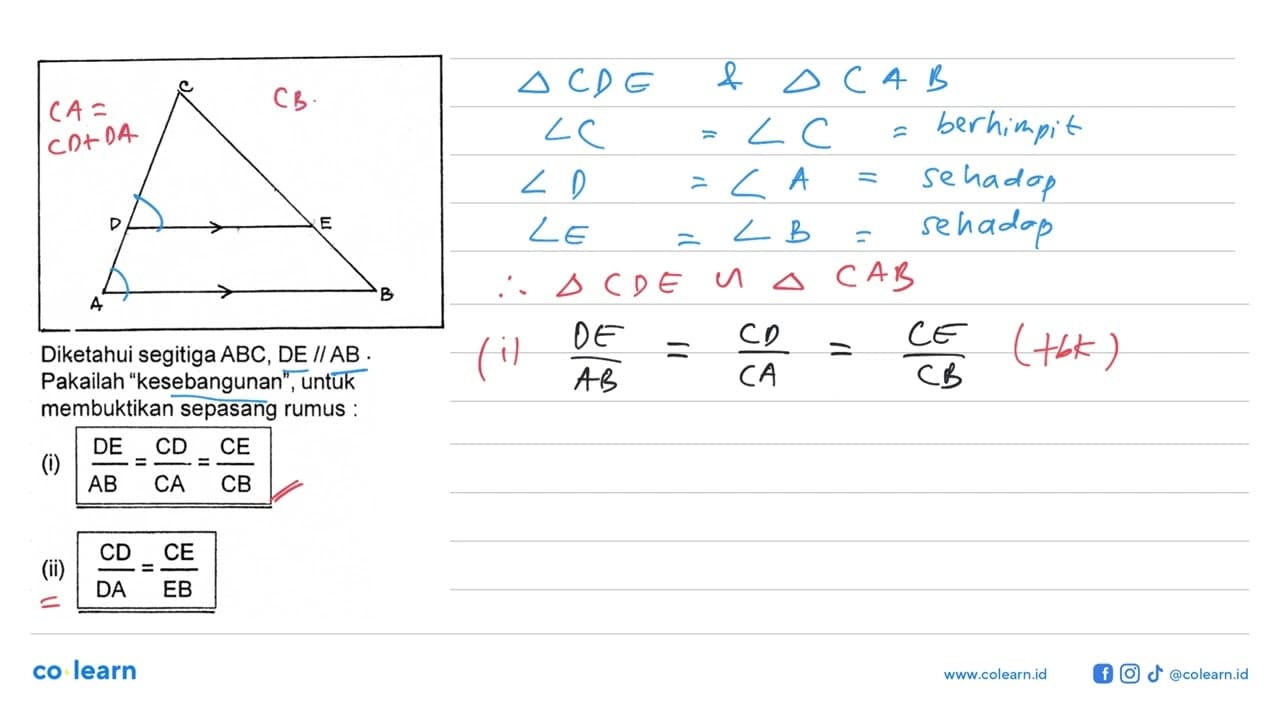 C
CA =
CD+DA
CB.
D
E
A
B
Diketahui segitiga ABC, DE // AB.
Pakailah "kesebangunan", untuk
membuktikan sepasang rumus :
(i) DE/AB = CD/CA = CE/CB
(ii) CD/DA = CE/EB
=
△ CDE & △ CAB
∠C = ∠C = berhimpit
∠D = ∠A = sehadap
∠E = ∠B = sehadap
∴ △ CDE ∽ △ CAB
(i) DE/AB = CD/CA = CE/CB (tbk)
co learn
www.colearn.id
@colearn.id